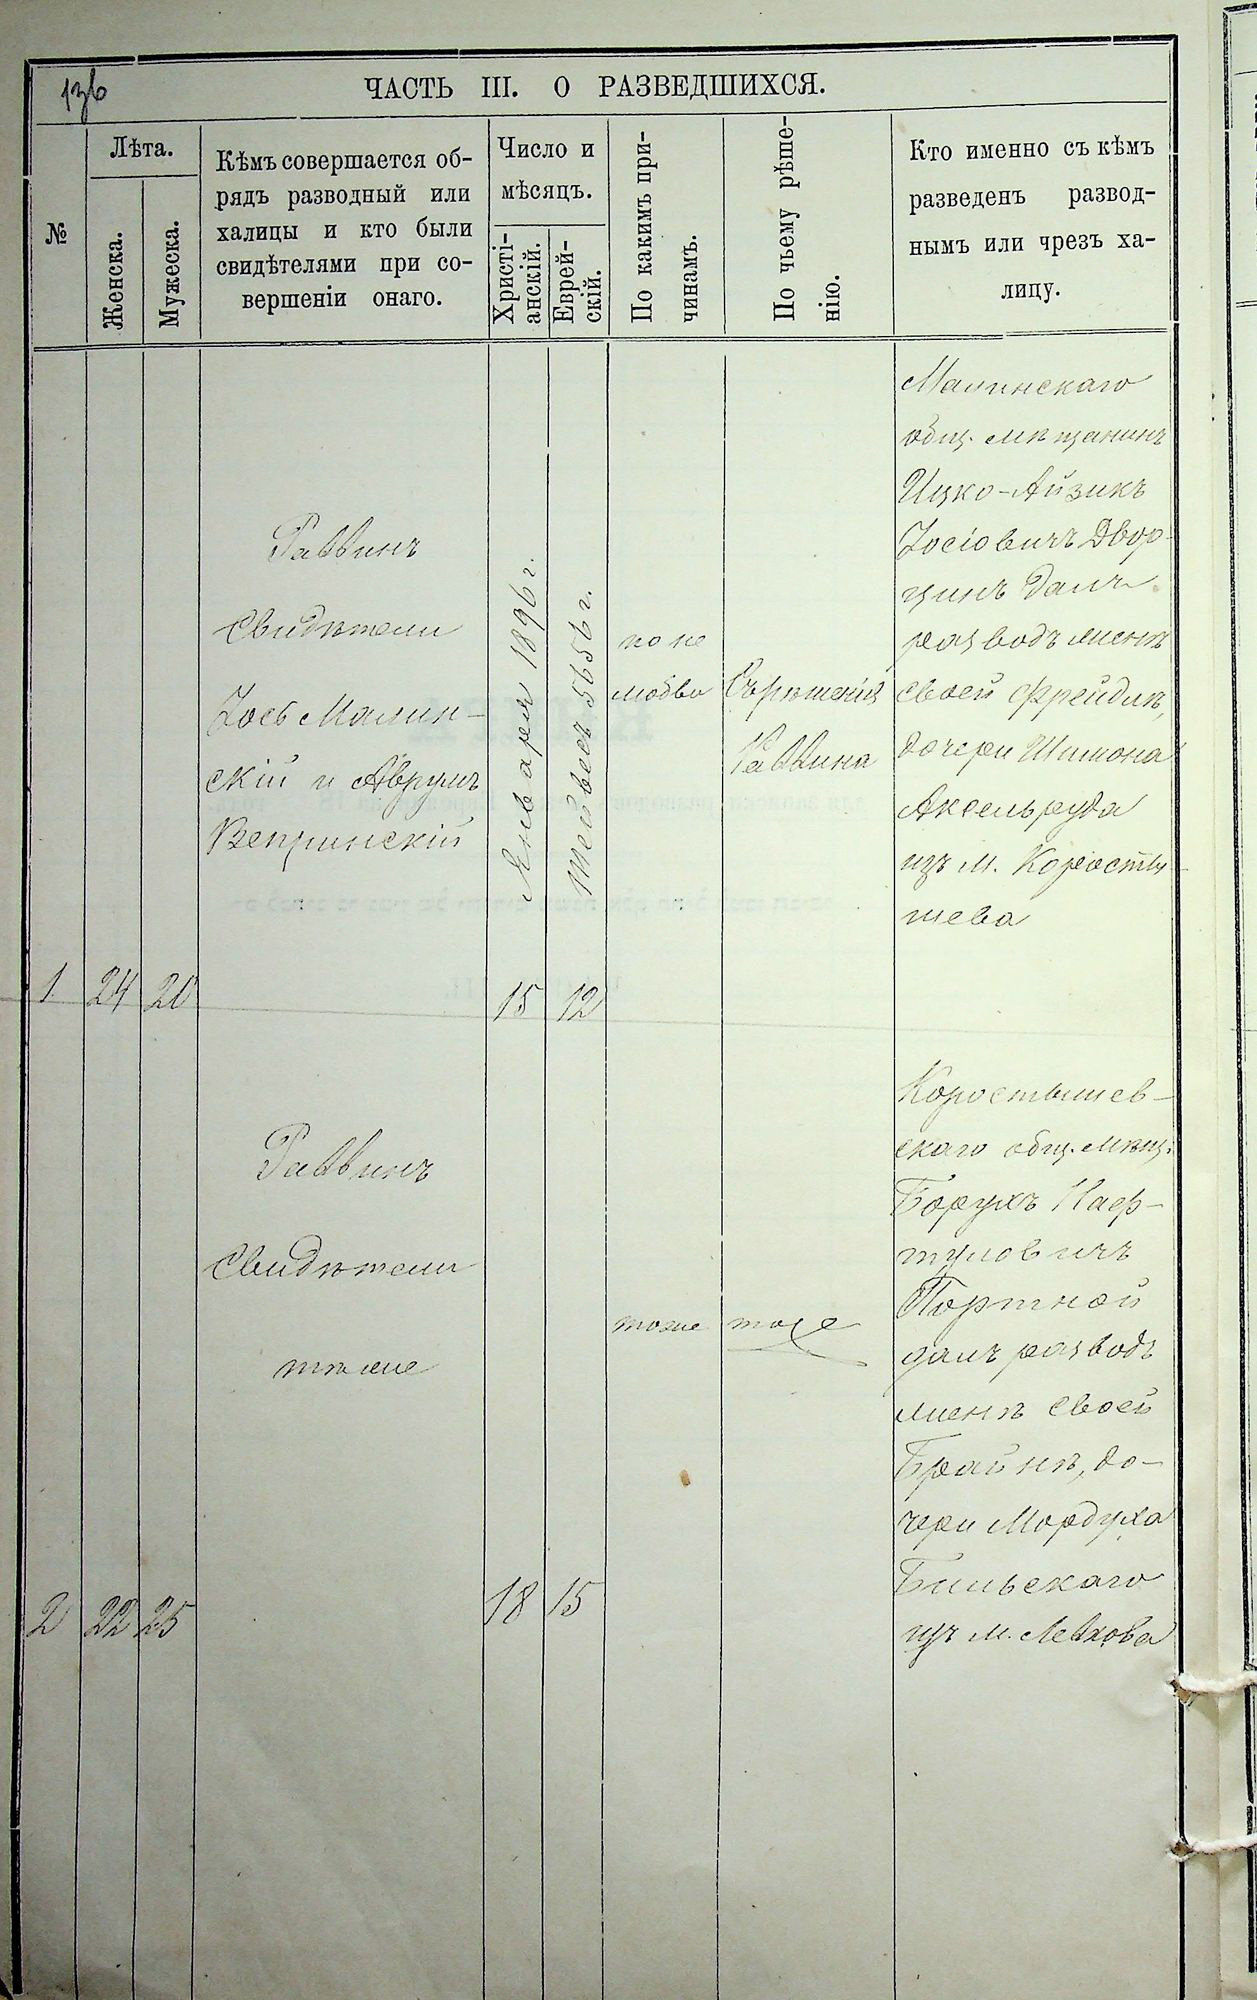 136
ЧАСТЬ III. О РАЗВЕДШИХСЯ.
№
Лѣта.
Женска.
Мужеска.
Кѣмъ совершается об-
рядъ разводный или
халицы и кто были
свидѣтелями при со-
вершеніи онаго.
Число и
мѣсяцъ.
Христі-
анскій.
Еврей-
скій.
По какимъ при-
чинамъ.
По чьему рѣше-
нію.
Кто именно съ кѣмъ
разведенъ развод-
нымъ или чрезъ ха-
лицу.
1
24
20
Раввинъ
Свидѣтели
Іось Малин-
скій и Аврумъ
Вепринскій
Января 1896 г.
15
Тейвес 5656 г.
12
по не
любви
Съ рѣшенія
Раввина
Малинскаго
общ. мѣщанинъ
Ицко-Айзикъ
Іосіовичъ Двор-
цинъ далъ
разводъ женѣ
своей Фрейдлѣ,
дочери Шимона
Аксельруда
изъ м. Коросты-
шева
2
22
25
Раввинъ
Свидѣтели
тѣ же
18
15
тоже
тоже
Коростышев-
скаго общ. мѣщ.
Борухъ Наф-
туловичъ
Портной
далъ разводъ
женѣ своей
Брайнѣ, до-
чери Мордуха
Бильскаго
изъ м. Левкова